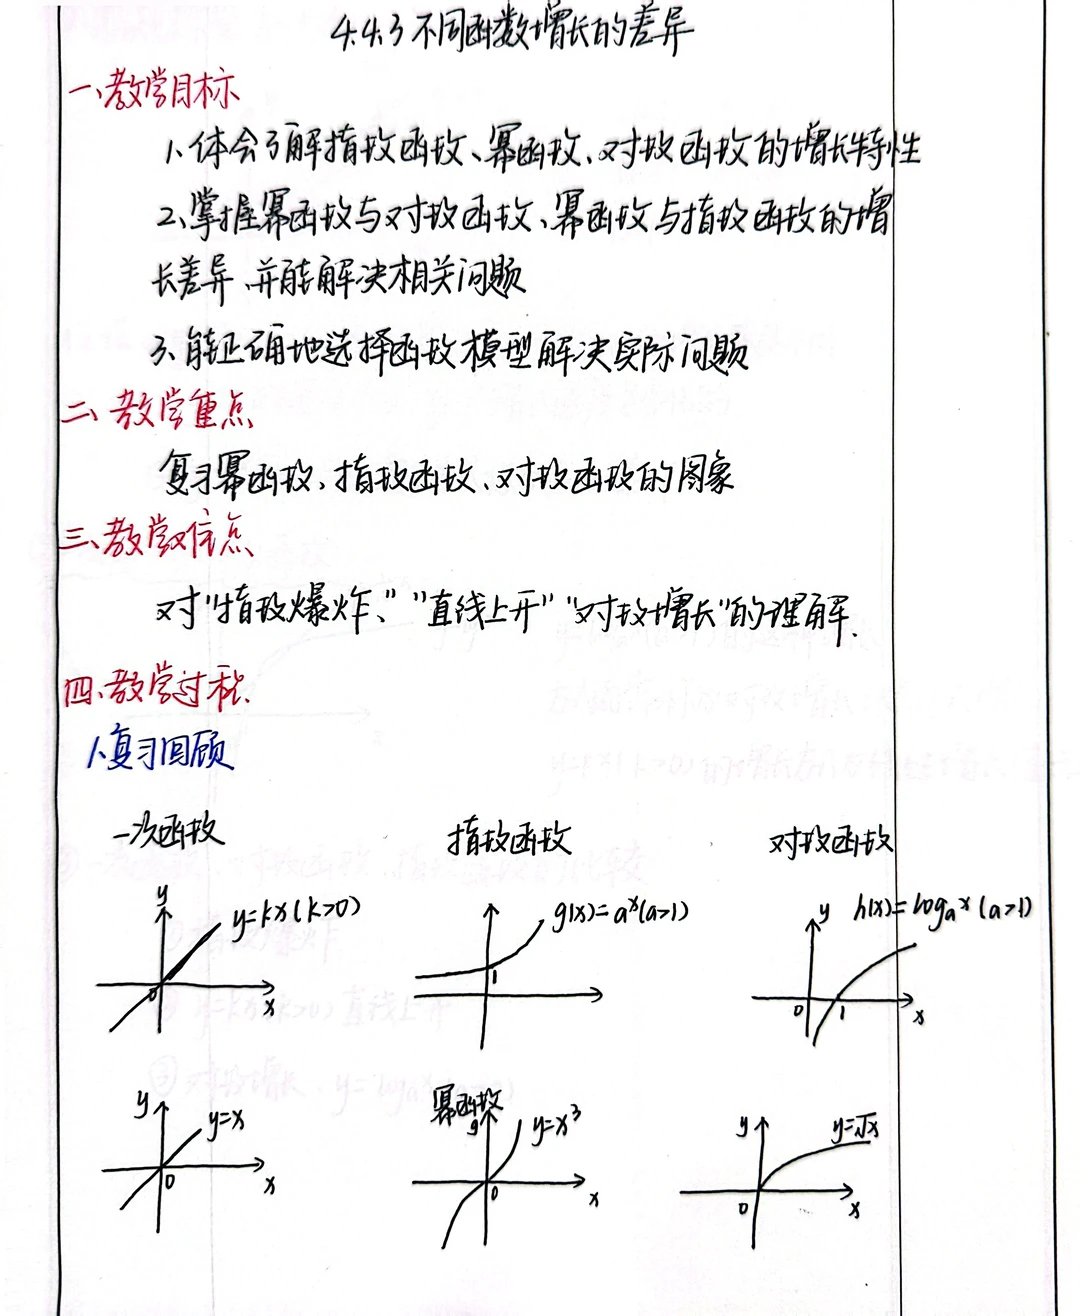 4.4.3 不同函数增长的差异
一、教学目标
1、体会了解指数函数、幂函数、对数函数的增长特性
2、掌握幂函数与对数函数、幂函数与指数函数的增
长差异、并能解决相关问题
3、能正确地选择函数模型解决实际问题
二、教学重点
复习幂函数、指数函数、对数函数的图象
三、教学难点
对"指数爆炸、" "直线上升" "对数增长"的理解.
四、教学过程.
1、复习回顾
一次函数 指数函数 对数函数
y y=kx(k>0) g(x)=aˣ(a>1) y h(x)=logₐˣ(a>1)
0 x 1 0 1 x
幂函数
y y=x y y=x³ y y=√x
0 x 0 x 0 x